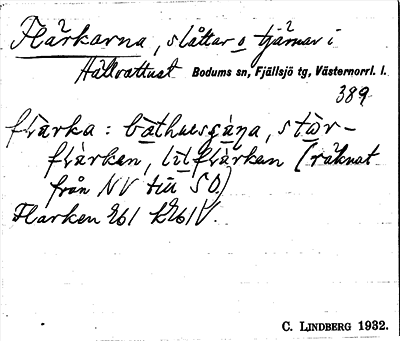 Flärkarna, slåttar o tjärnar i
Hällvattnet Bodums sn, Fjällsjö tg, Västernorrl. l.
389
flärka: båthusgána, stør-
flärkan, litflärkan (räknat
från NV till SO.)
Flarken Eb1 kEb1V.
C. LINDBERG 1932.